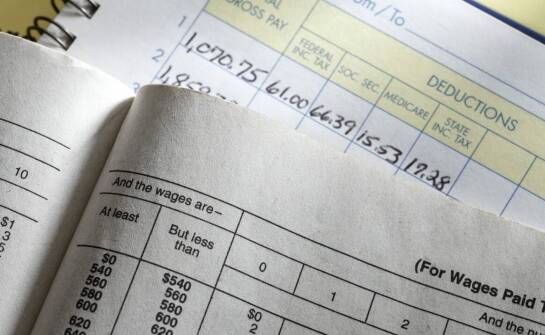 om/To
GROSS PAY
FEDERAL
INC. TAX
SOC. SEC.
MEDICARE
STATE
INC. TAX
DEDUCTIONS
1
1,070.75 61.00 66.39 15.53 17.28
2
10
$1
3
5
And the wages are–
(For Wages Paid
At least
But less
than
0
1
2
And the
$0
540
560
580
600
620
$540
560
580
600
620
$0
2